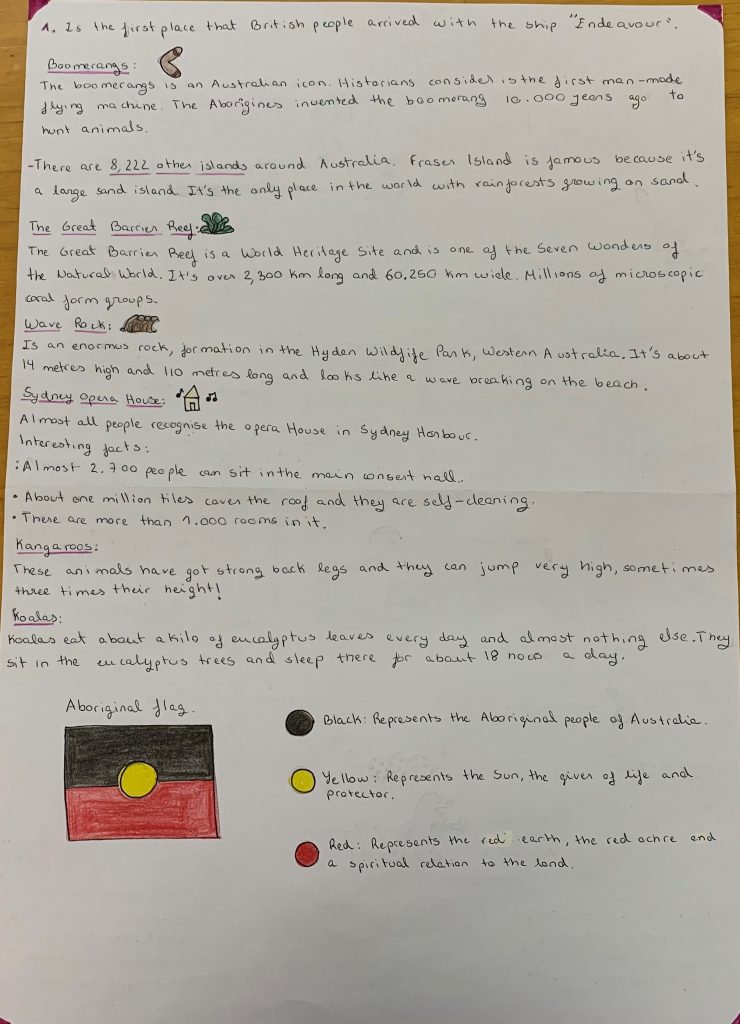 1. Is the first place that British people arrived with the ship "Endeavour".
Boomerangs:
The boomerangs is an Australian icon. Historians consider is the first man-made
flying machine. The Aborigines invented the boomerang 10.000 years ago to
hunt animals.
-There are 8,222 other islands around Australia. Fraser Island is famous because it's
a large sand island. It's the only place in the world with rainforests growing on sand.
The Great Barrier Reef:
The Great Barrier Reef is a World Heritage Site and is one of the Seven Wonders of
the Natural World. It's over 2,300 km long and 60.250 km wide. Millions of microscopic
coral form groups.
Wave Rock:
Is an enormus rock, formation in the Hyden Wildlife Park, Western Australia. It's about
14 metres high and 110 metres long and looks like a wave breaking on the beach.
Sydney Opera House:
Almost all people recognise the opera House in Sydney Harbour.
Interesting facts:
• Almost 2.700 people can sit in the main consert hall.
• About one million tiles cover the roof and they are self-cleaning.
• There are more than 1.000 rooms in it.
Kangaroos:
These animals have got strong back legs and they can jump very high, sometimes
three times their height!
Koalas:
Koalas eat about a kilo of eucalyptus leaves every day and almost nothing else. They
sit in the eucalyptus trees and sleep there for about 18 hous a day.
Aboriginal flag.
Black: Represents the Aboriginal people of Australia.
Yellow: Represents the Sun, the giver of life and
protector.
Red: Represents the red earth, the red ochre and
a spiritual relation to the land.